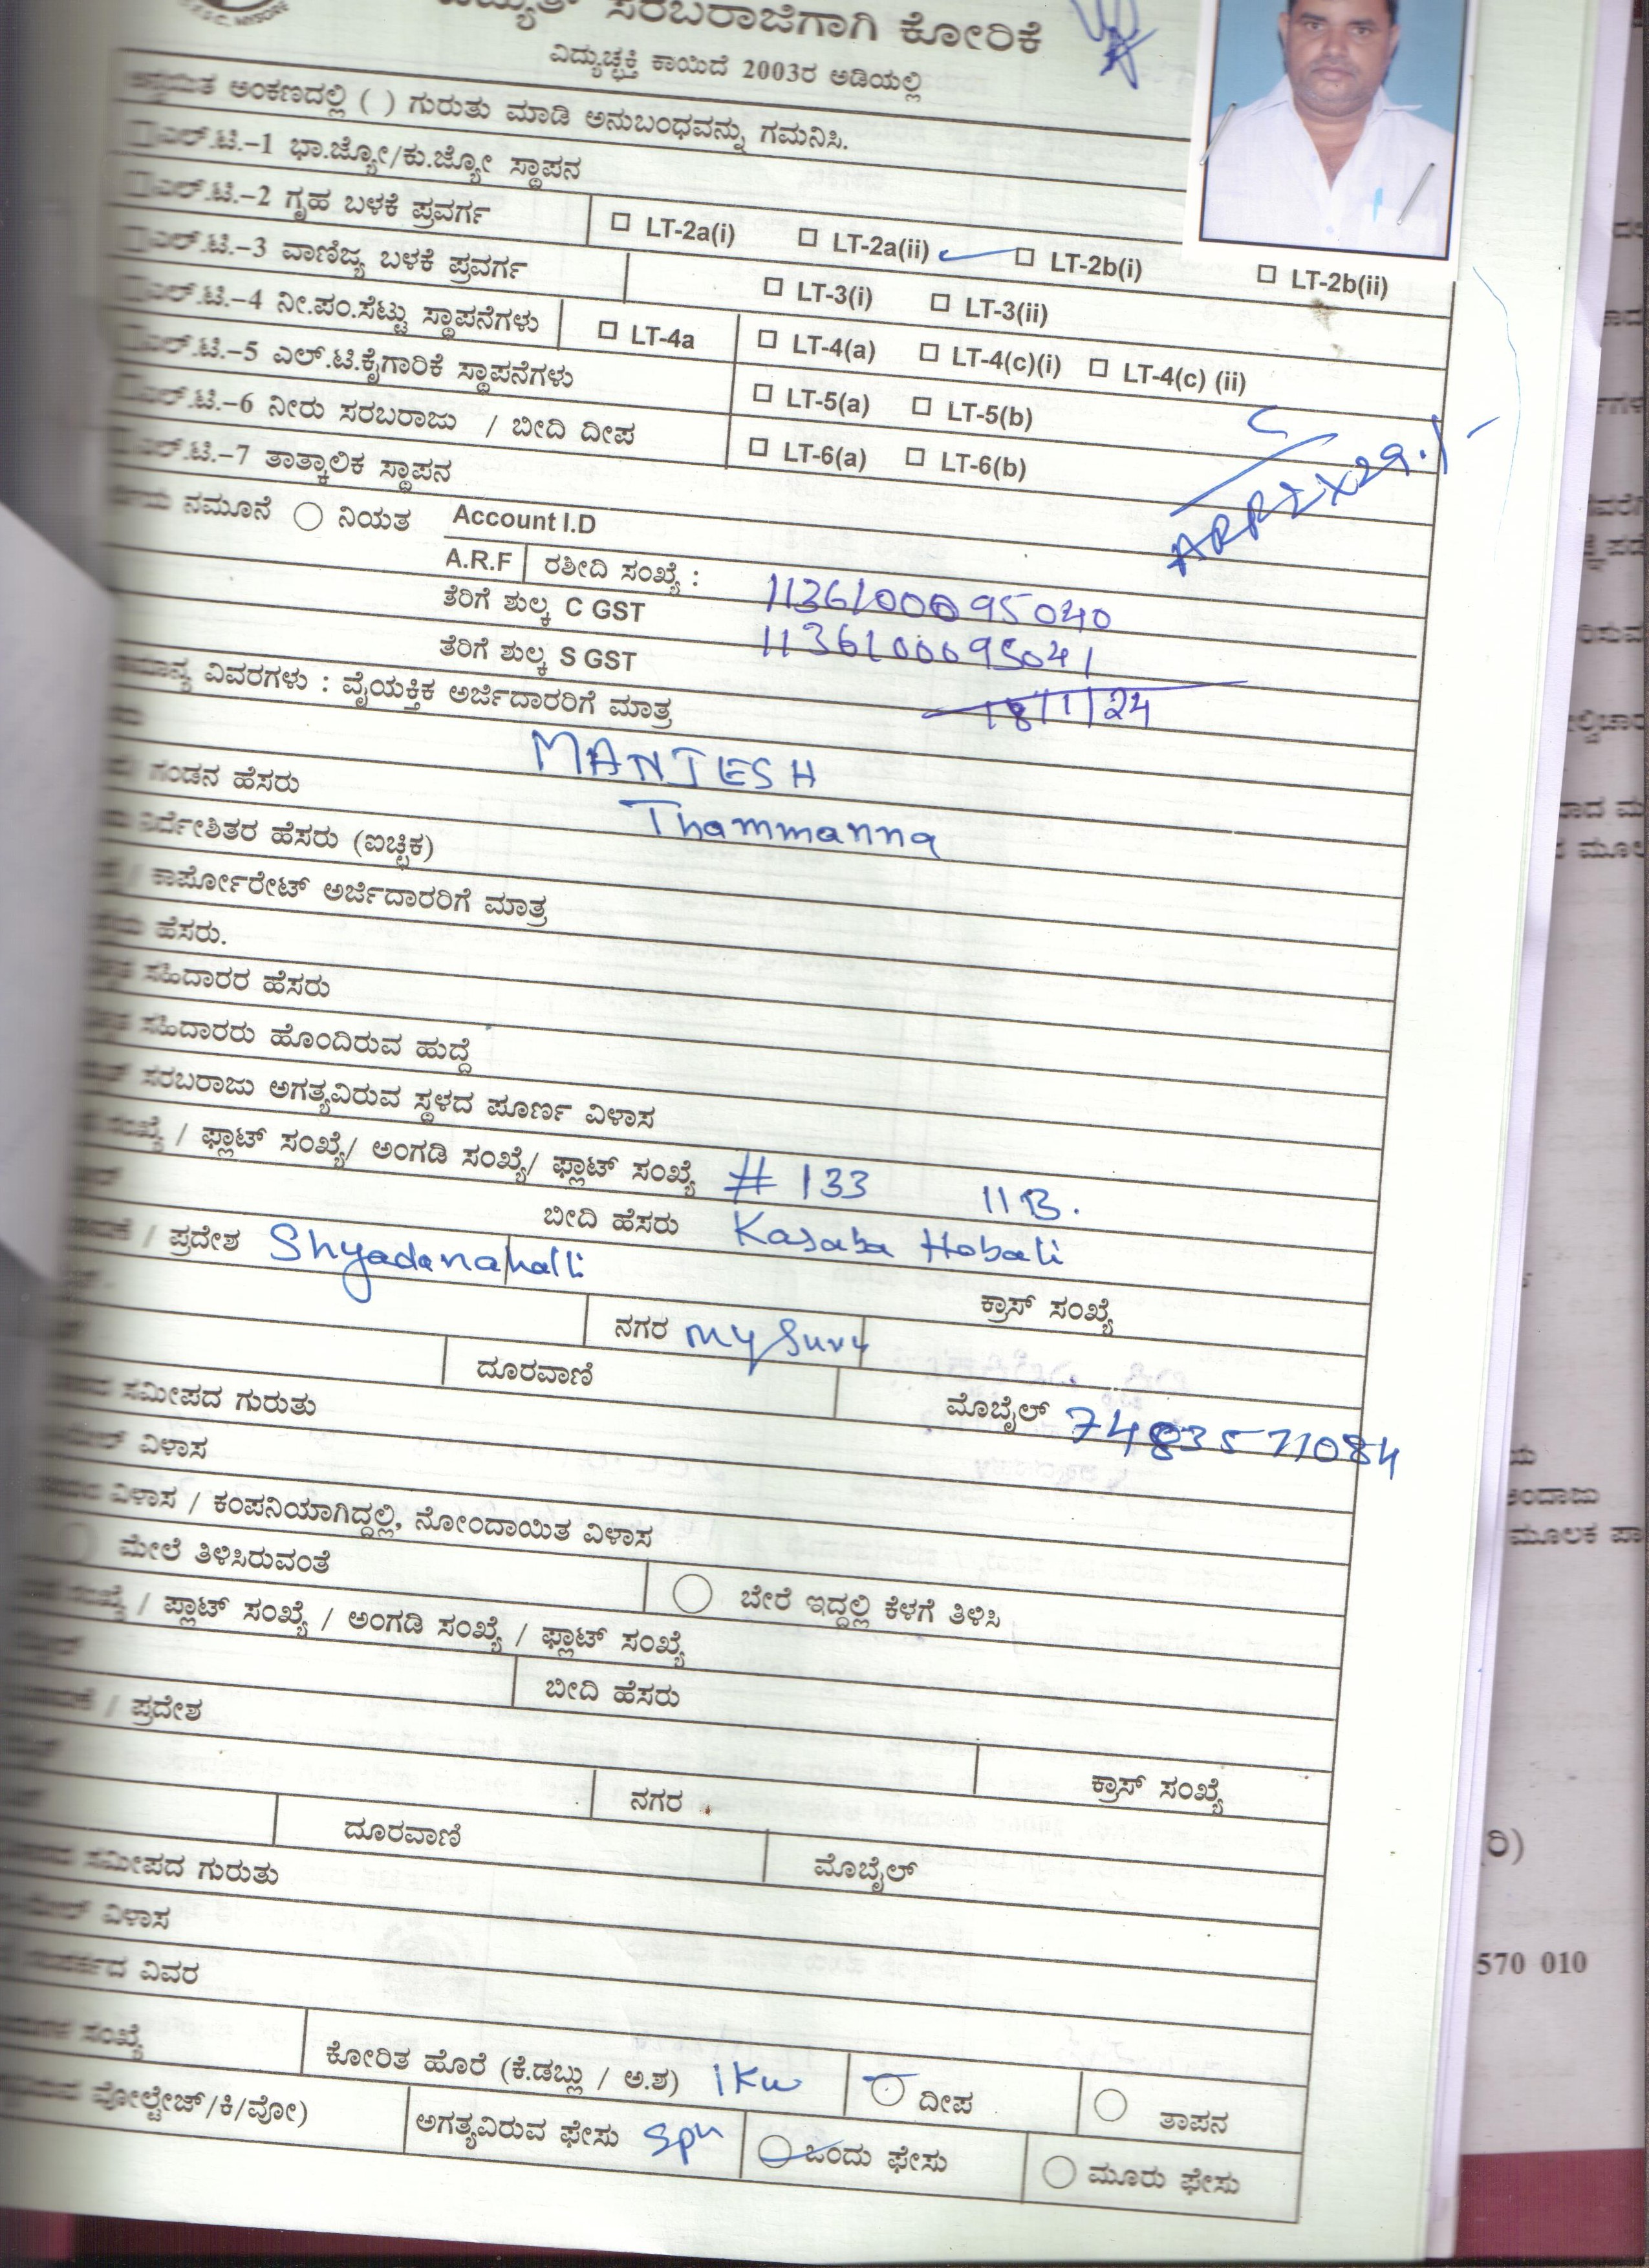 ಸರಬರಾಜಿಗಾಗಿ ಕೋರಿಕೆ
ವಿದ್ಯುಚ್ಛಕ್ತಿ ಕಾಯಿದೆ 2003ರ ಅಡಿಯಲ್ಲಿ
ಅಂಕಣದಲ್ಲಿ ( ) ಗುರುತು ಮಾಡಿ ಅನುಬಂಧವನ್ನು ಗಮನಿಸಿ.
ಎಲ್.ಟಿ.-1 ಭಾ.ಜ್ಯೋ/ಕು.ಜ್ಯೋ ಸ್ಥಾಪನ
ಎಲ್.ಟಿ.-2 ಗೃಹ ಬಳಕೆ ಪ್ರವರ್ಗ LT-2a(i) LT-2a(ii) LT-2b(i) LT-2b(ii)
ಎಲ್.ಟಿ.-3 ವಾಣಿಜ್ಯ ಬಳಕೆ ಪ್ರವರ್ಗ LT-3(i) LT-3(ii)
ಎಲ್.ಟಿ.-4 ನೀ.ಪಂ.ಸೆಟ್ಟು ಸ್ಥಾಪನೆಗಳು LT-4a LT-4(a) LT-4(c)(i) LT-4(c) (ii)
ಎಲ್.ಟಿ.-5 ಎಲ್.ಟಿ.ಕೈಗಾರಿಕೆ ಸ್ಥಾಪನೆಗಳು LT-5(a) LT-5(b)
ಎಲ್.ಟಿ.-6 ನೀರು ಸರಬರಾಜು / ಬೀದಿ ದೀಪ LT-6(a) LT-6(b)
ಎಲ್.ಟಿ.-7 ತಾತ್ಕಾಲಿಕ ಸ್ಥಾಪನ
ನಮೂನೆ ನಿಯತ Account I.D
A.R.F ರಶೀದಿ ಸಂಖ್ಯೆ :
ತೆರಿಗೆ ಶುಲ್ಕ C GST 1136100095040
ತೆರಿಗೆ ಶುಲ್ಕ S GST 1136100095041
ವಿವರಗಳು : ವೈಯಕ್ತಿಕ ಅರ್ಜಿದಾರರಿಗೆ ಮಾತ್ರ 18/1/24
MANJESH
ಗಂಡನ ಹೆಸರು Thammanna
ನಿರ್ದೇಶಿತರ ಹೆಸರು (ಐಚ್ಛಿಕ)
/ ಕಾರ್ಪೋರೇಟ್ ಅರ್ಜಿದಾರರಿಗೆ ಮಾತ್ರ
ಹೆಸರು.
ಸಹಿದಾರರ ಹೆಸರು
ಸಹಿದಾರರು ಹೊಂದಿರುವ ಹುದ್ದೆ
ಸರಬರಾಜು ಅಗತ್ಯವಿರುವ ಸ್ಥಳದ ಪೂರ್ಣ ವಿಳಾಸ
ಸಂಖ್ಯೆ / ಫ್ಲಾಟ್ ಸಂಖ್ಯೆ/ ಅಂಗಡಿ ಸಂಖ್ಯೆ/ ಫ್ಲಾಟ್ ಸಂಖ್ಯೆ # 133 11B.
ಬೀದಿ ಹೆಸರು Kasaba Hobali
/ ಪ್ರದೇಶ Shyadanahalli ಕ್ರಾಸ್ ಸಂಖ್ಯೆ
ನಗರ mysuru
ದೂರವಾಣಿ ಮೊಬೈಲ್ 7483571084
ಸಮೀಪದ ಗುರುತು
ವಿಳಾಸ
ವಿಳಾಸ / ಕಂಪನಿಯಾಗಿದ್ದಲ್ಲಿ, ನೋಂದಾಯಿತ ವಿಳಾಸ
ಮೇಲೆ ತಿಳಿಸಿರುವಂತೆ ಬೇರೆ ಇದ್ದಲ್ಲಿ ಕೆಳಗೆ ತಿಳಿಸಿ
ಸಂಖ್ಯೆ / ಪ್ಲಾಟ್ ಸಂಖ್ಯೆ / ಅಂಗಡಿ ಸಂಖ್ಯೆ / ಫ್ಲಾಟ್ ಸಂಖ್ಯೆ
ಬೀದಿ ಹೆಸರು
/ ಪ್ರದೇಶ ಕ್ರಾಸ್ ಸಂಖ್ಯೆ
ನಗರ
ದೂರವಾಣಿ ಮೊಬೈಲ್
ಸಮೀಪದ ಗುರುತು
ವಿಳಾಸ
ವಿವರ
ಸಂಖ್ಯೆ ಕೋರಿತ ಹೊರೆ (ಕೆ.ಡಬ್ಲು / ಅ.ಶ) 1Kw ದೀಪ ತಾಪನ
ವೋಲ್ಟೇಜ್/ಕಿ/ವೋ) ಅಗತ್ಯವಿರುವ ಫೇಸು Sph ಒಂದು ಫೇಸು ಮೂರು ಫೇಸು
570 010